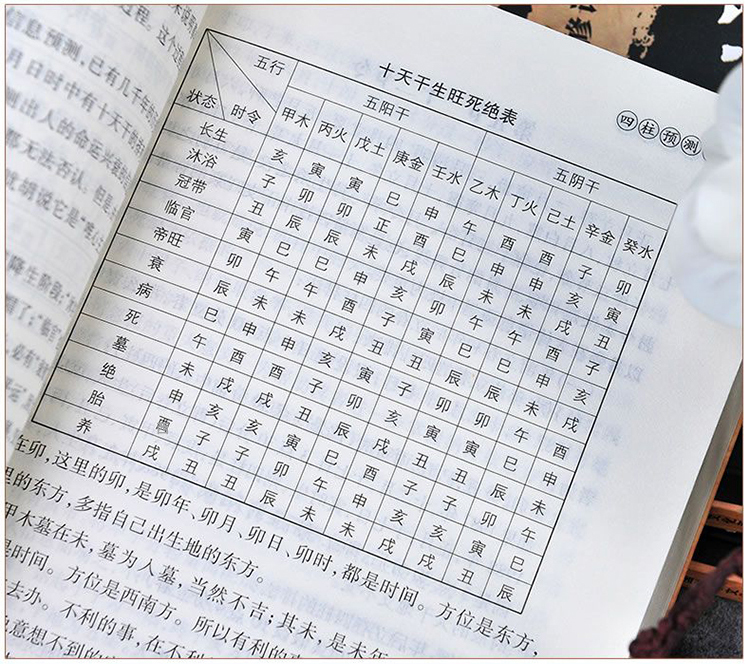 信息预测,已有几千年的
月日时中有十天干的
测出人的命运兴衰
都无法否认。但是
就胡说它是"唯心
降生阶段;
四柱预测
十天干生旺死绝表
五行 五阳干 五阴干
状态 时令 甲木 丙火 戊土 庚金 壬水 乙木 丁火 己土 辛金 癸水
长生 亥 寅 寅 巳 申 午 酉 酉 子 卯
沐浴 子 卯 卯 正 酉 巳 申 申 亥 寅
冠带 丑 辰 辰 未 戌 辰 未 未 戌 丑
临官 寅 巳 巳 申 亥 卯 午 午 酉 子
帝旺 卯 午 午 酉 子 寅 巳 巳 申 亥
衰 辰 未 未 戌 丑 丑 辰 辰 未 戌
病 巳 申 申 亥 寅 子 卯 卯 午 酉
死 午 酉 酉 子 卯 亥 寅 寅 巳 申
墓 未 戌 戌 丑 辰 戌 丑 丑 辰 未
绝 申 亥 亥 寅 巳 酉 子 子 卯 午
胎 酉 子 子 卯 午 申 亥 亥 寅 巳
养 戌 丑 丑 辰 未 未 戌 戌 丑 辰
在卯,这里的卯,是卯年、卯月、卯日、卯时,都是时间。方位是东方,
里的东方,多指自己出生地的东方。
甲木墓在未,墓为入墓,当然不吉;其未,是未年
是时间。方位是西南方。所以有利的
去办。不利的事,在不利
意想不到的